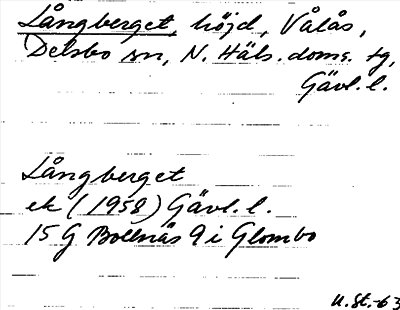 Långberget, höjd, Vålås,
Delsbo sn, N. Häls. doms. tg,
Gävl. l.
Långberget
ek (1958) Gävl. l.
15 G Bollnäs 9 i Glombo
U. St. -63